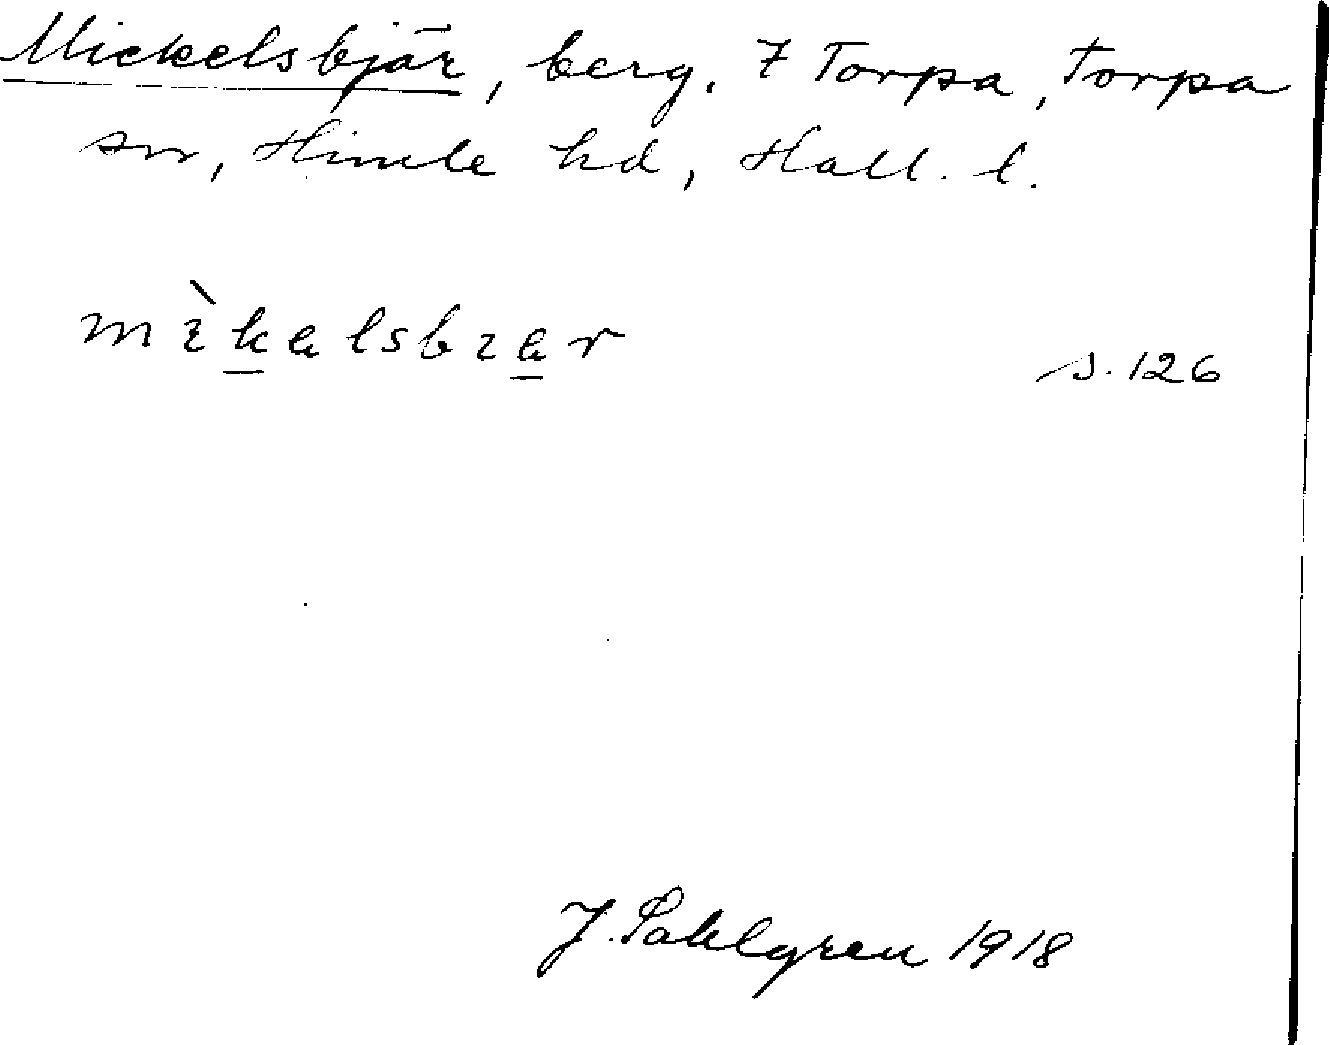 Mickelsbjär, berg. 7 Torpa, Torpa
sn, Himle hd, Hall. l.
mìkalsbɩar
s. 126
J. Sahlgren 1918